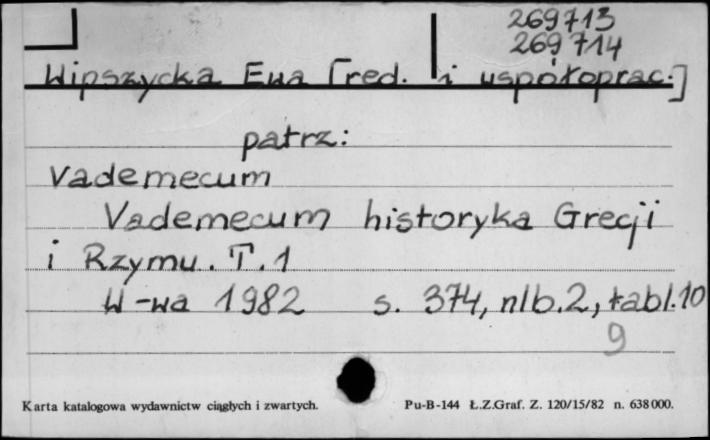 269713
269714
Wipszycka Ewa [red. i współoprac.]
patrz:
Vademecum
Vademecum historyka Grecji
i Rzymu. T. 1
W-wa 1982 s. 374, nlb. 2, tabl. 10
9
Karta katalogowa wydawnictw ciągłych i zwartych. Pu-B-144 Ł.Z.Graf. Z. 120/15/82 n. 638000.